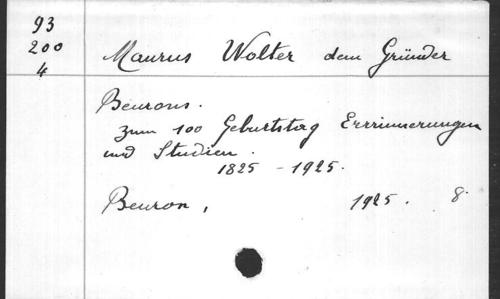 93
200
4
Maurus Wolter dem Gründer
Beurons.
zum 100 Geburtstag Errrinnerungen
und Studien.
1825 - 1925.
Beuron, 1925. 8.